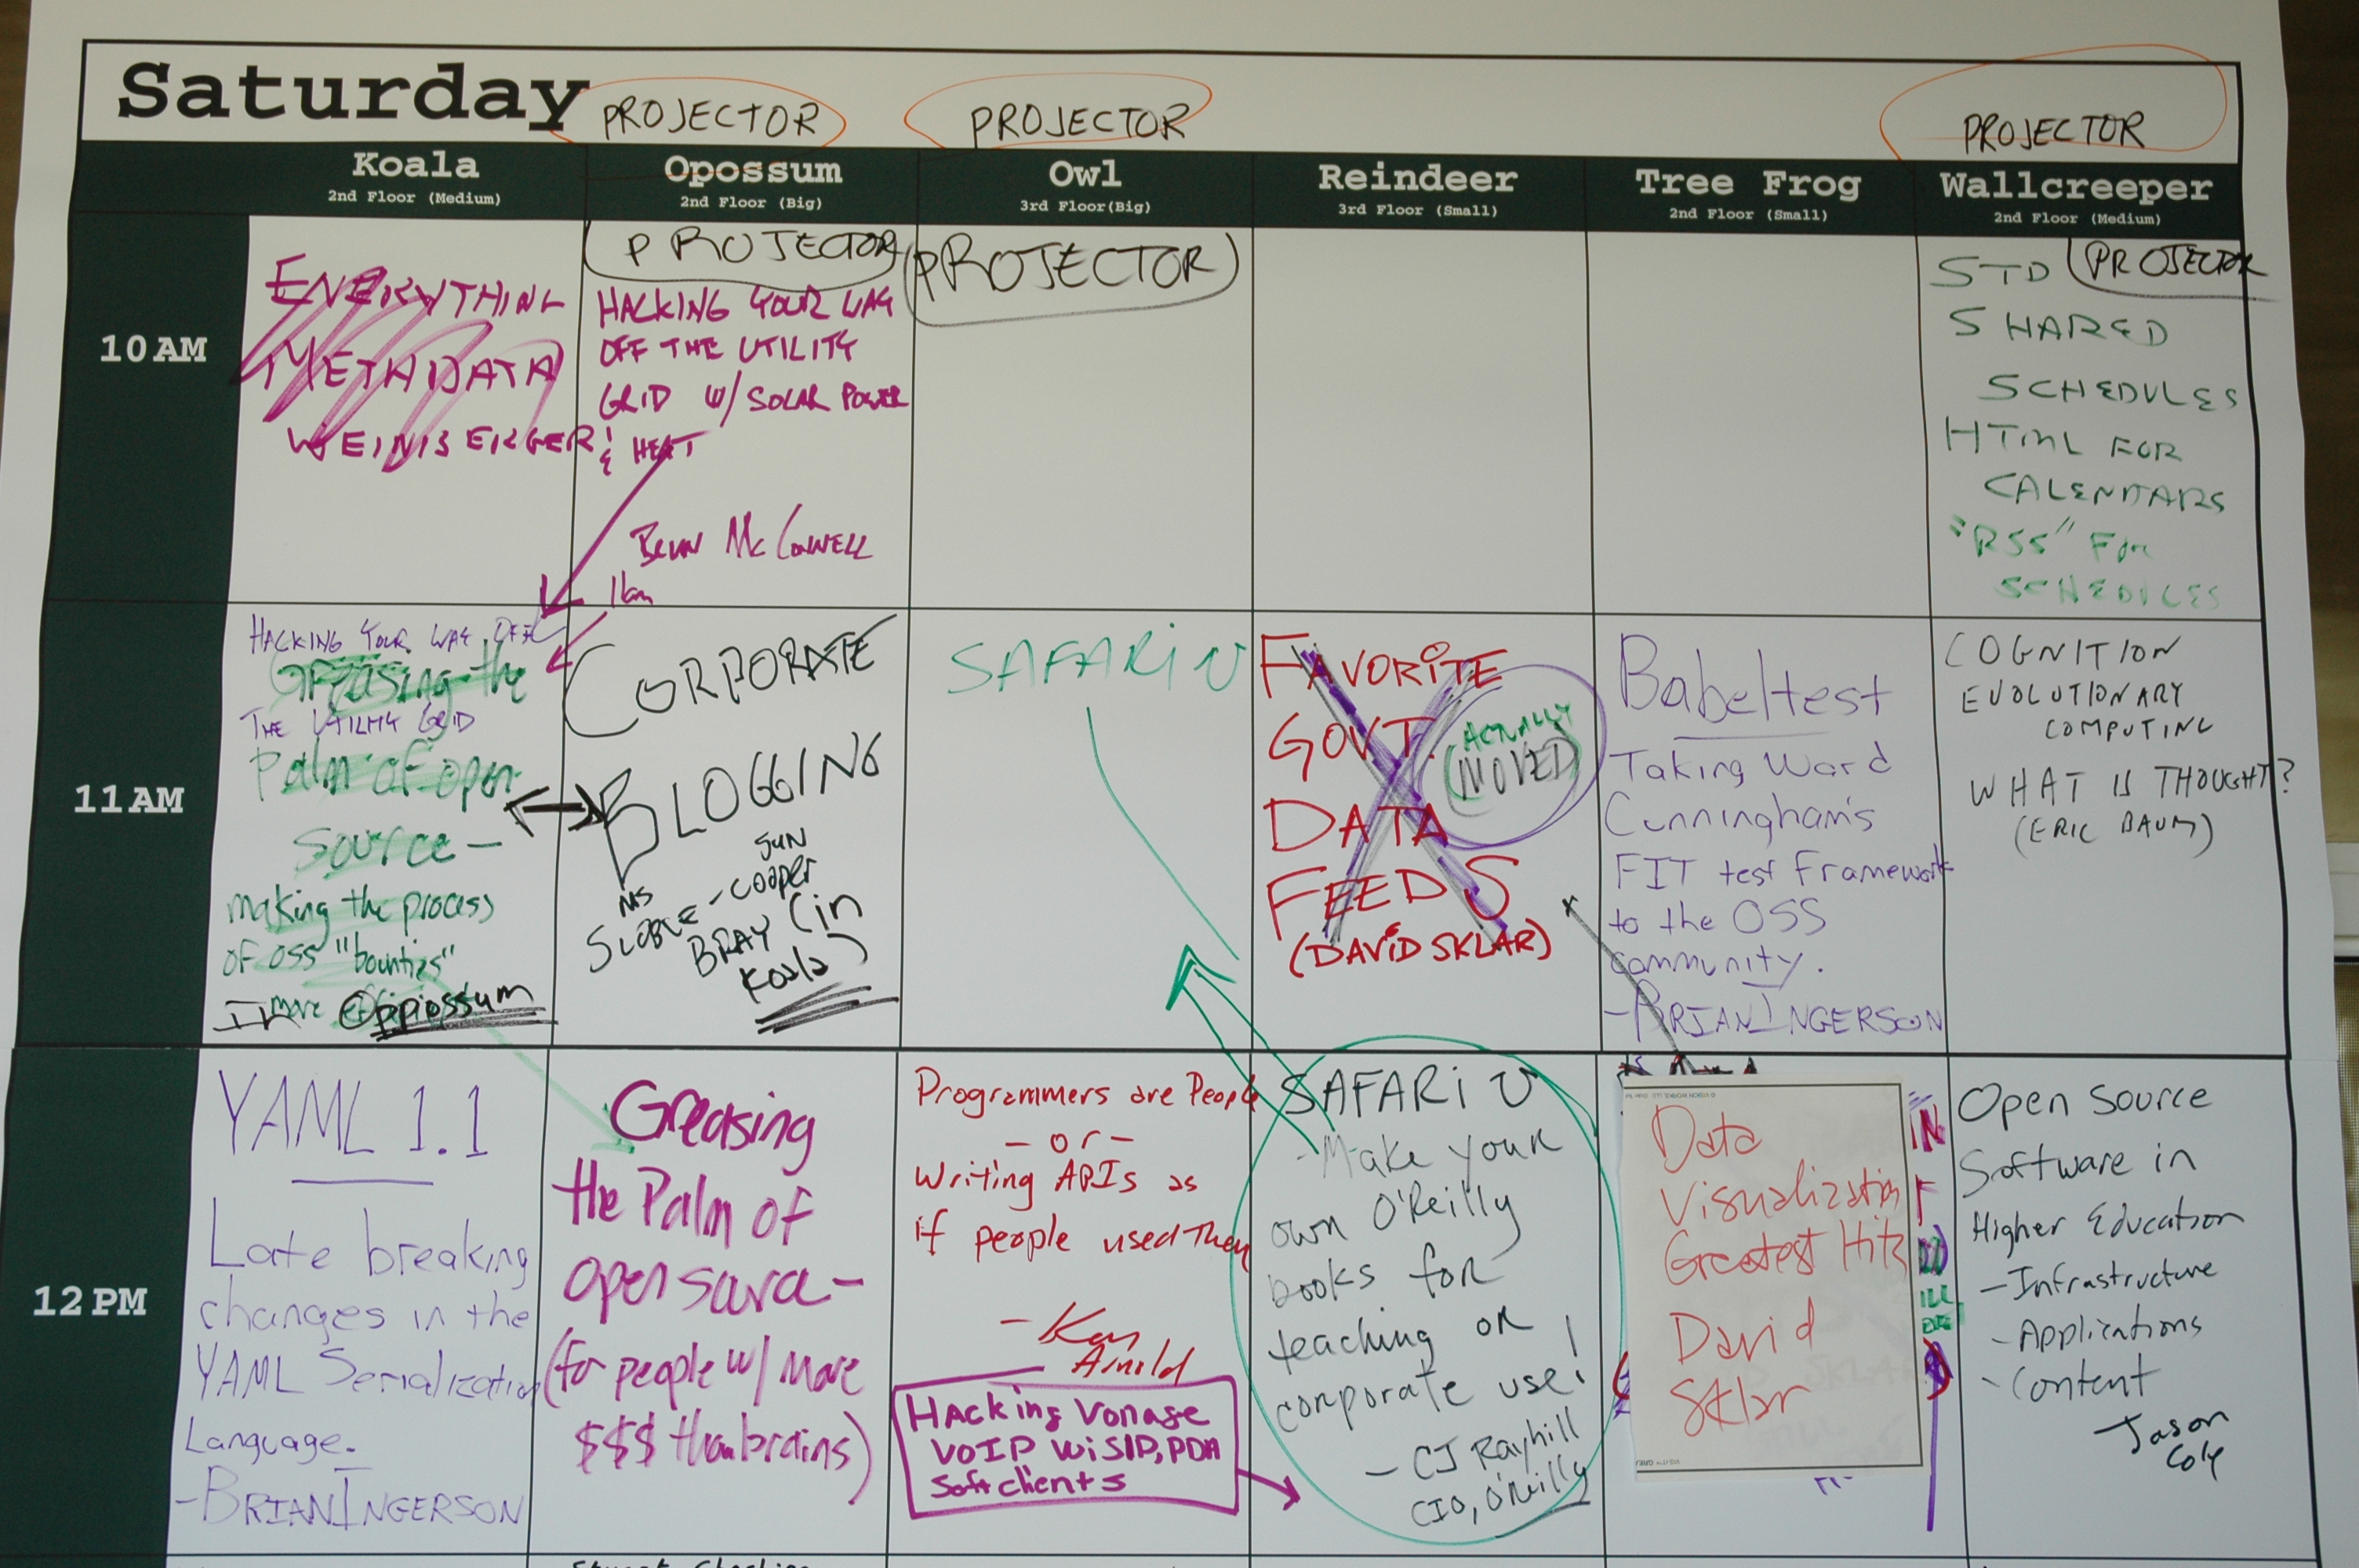 Saturday
PROJECTOR
PROJECTOR
PROJECTOR
Koala
2nd Floor (Medium)
Opossum
2nd Floor (Big)
Owl
3rd Floor(Big)
Reindeer
3rd Floor (Small)
Tree Frog
2nd Floor (Small)
Wallcreeper
2nd Floor (Medium)
10 AM
METADATA
PROJECTOR
HACKING YOUR WAY
OFF THE UTILITY
GRID W/ SOLAR POWER
& HEAT
McConnell
PROJECTOR
STD
PROJECTOR
SHARED
SCHEDULES
HTML FOR
CALENDARS
"RSS" For
SCHEDULES
11 AM
HACKING YOUR WAY OFF
Greasing the
THE UTILITY GRID
Palm of open
source —
making the process
of OSS "bounties"
more
In Oppiossum
CORPORATE
BLOGGING
SUN
MS
SCOBLE - Cooper
BRAY (in
Koala)
SAFARI U
FAVORITE
GOVT.
DATA
FEEDS
(DAVID SKLAR)
ACTUALLY
MOVED
Babeltest
Taking Ward
Cunningham's
FIT test Framework
to the OSS
community.
- BRIAN INGERSON
COGNITION
EVOLUTIONARY
COMPUTING
WHAT IS THOUGHT?
(ERIC BAUM)
12 PM
YAML 1.1
Late breaking
changes in the
YAML Serialization
Language.
- BRIAN INGERSON
Greasing
the Palm of
open source —
(for people w/ more
$$$ than brains)
Programmers are People
— or —
Writing APIs as
if people used Them
— Ken
Arnold
Hacking Vonage
VoIP WiSIP, PDA
Soft clients
SAFARI U
- Make your
own O'Reilly
books for
teaching or
corporate use!
— CJ Rayhill
CIO, O'Reilly
Data
Visualization
Greatest Hits
David
Sklar
Open Source
Software in
Higher Education
- Infrastructure
- Applications
- Content
Jason
Cole